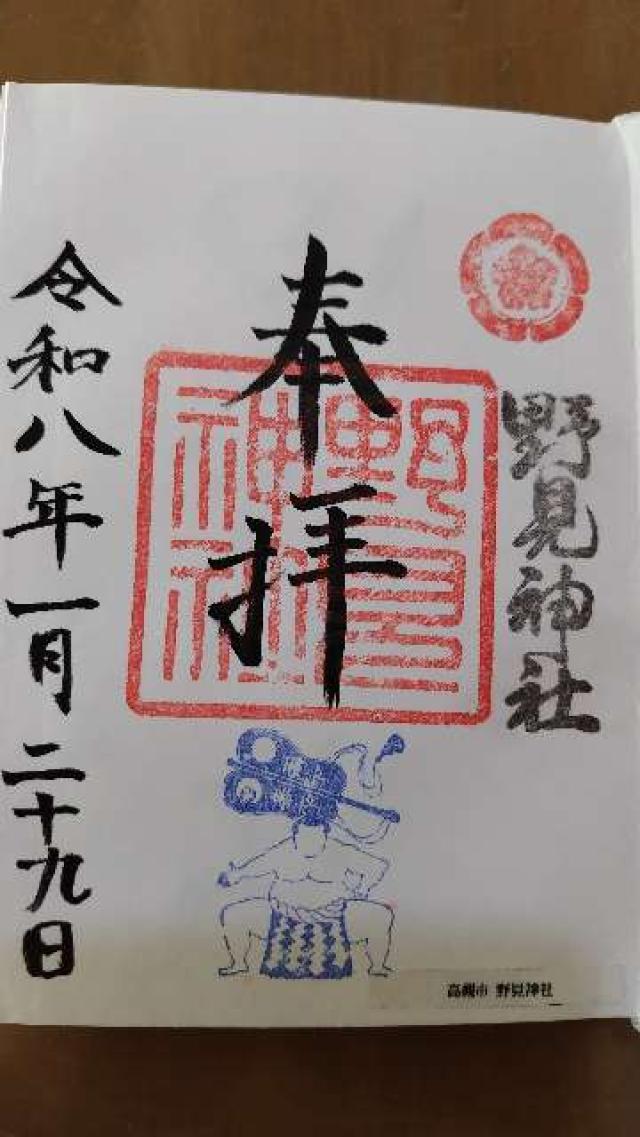 野見神社
奉拝
野見神社
令和八年一月二十九日
高槻市 野見神社